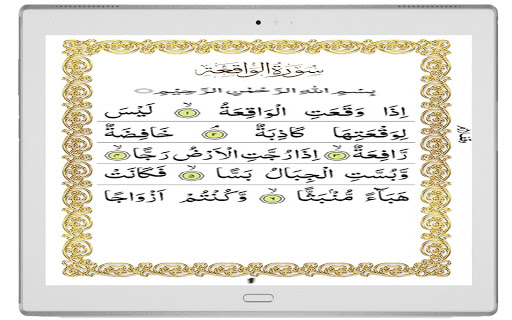 سُورَةُ الْوَاقِعَة
بِسْمِ اللهِ الرَّحْمٰنِ الرَّحِيْمِ
اِذَا وَقَعَتِ الْوَاقِعَةُ ۙ‏﴿۱﴾ لَيْسَ
لِوَقْعَتِهَا كَاذِبَةٌ ۘ‏﴿۲﴾ خَافِضَةٌ
رَّافِعَةٌ ۙ‏﴿۳﴾ اِذَا رُجَّتِ الْاَرْضُ رَجًّا ۙ‏﴿۴﴾
وَّبُسَّتِ الْجِبَالُ بَسًّا ۙ‏﴿۵﴾ فَكَانَتْ
هَبَآءً مُّنْۢبَثًّا ۙ‏﴿۶﴾ وَّكُنْتُمْ اَزْوَاجًا